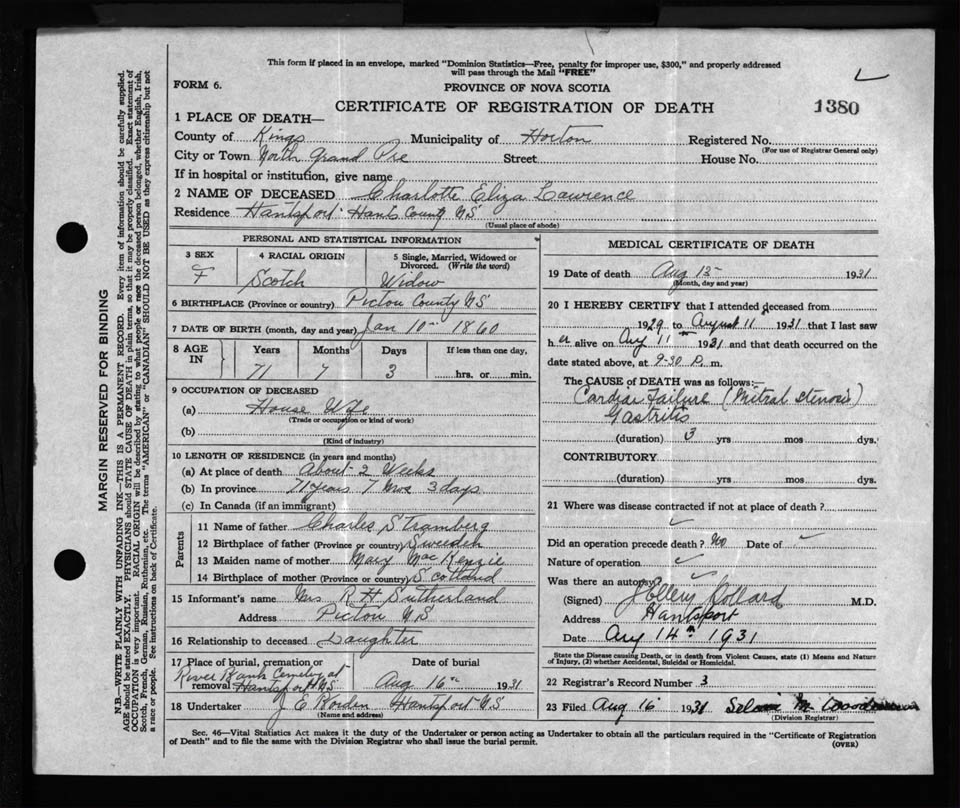 This form if placed in an envelope, marked "Dominion Statistics—Free, penalty for improper use, $300," and properly addressed
will pass through the Mail "FREE"
FORM 6.
PROVINCE OF NOVA SCOTIA
CERTIFICATE OF REGISTRATION OF DEATH
1380
MARGIN RESERVED FOR BINDING
N.B.—WRITE PLAINLY WITH UNFADING INK—THIS IS A PERMANENT RECORD. Every item of information should be carefully supplied.
AGE should be stated EXACTLY. PHYSICIANS should STATE CAUSE OF DEATH in plain terms, so that it may be properly classified. Exact statement of
OCCUPATION is very important. RACIAL ORIGIN will be described by stating to what people or race the deceased person belonged, whether English, Irish,
Scotch, French, German, Russian, Ruthenian, etc. The terms "AMERICAN" or "CANADIAN" SHOULD NOT BE USED as they express citizenship but not
a race or people. See instructions on back of Certificate.
1 PLACE OF DEATH—
County of Kings Municipality of Horton Registered No.
(For use of Registrar General only)
City or Town North Grand Pre Street House No.
If in hospital or institution, give name
2 NAME OF DECEASED Charlotte Eliza Lawrence
Residence Hantsport Hants County NS
(Usual place of abode)
PERSONAL AND STATISTICAL INFORMATION
3 SEX
F
4 RACIAL ORIGIN
Scotch
5 Single, Married, Widowed or
Divorced. (Write the word)
Widow
6 BIRTHPLACE (Province or country) Pictou County NS
7 DATE OF BIRTH (month, day and year) Jan 10th 1860
8 AGE IN
Years Months Days If less than one day,
71 7 3 hrs. or min.
9 OCCUPATION OF DECEASED
(a) House Wife
(Trade or occupation or kind of work)
(b)
(Kind of industry)
10 LENGTH OF RESIDENCE (in years and months)
(a) At place of death About 2 Weeks
(b) In province 71 years 7 Mos 3 days
(c) In Canada (if an immigrant)
Parents
11 Name of father Charles S Tramberg
12 Birthplace of father (Province or country) Sweeden
13 Maiden name of mother Mary MacKenzie
14 Birthplace of mother (Province or country) Scotland
15 Informant's name Mrs R H Sutherland
Address Pictou NS
16 Relationship to deceased Daughter
17 Place of burial, cremation or
removal River Bank Cemetery at
Hantsport NS
Date of burial
Aug 16th 1931
18 Undertaker J E Borden Hantsport NS
(Name and address)
MEDICAL CERTIFICATE OF DEATH
19 Date of death Aug 13 1931
(Month, day and year)
20 I HEREBY CERTIFY that I attended deceased from
1929 to August 11 1931 that I last saw
her alive on Aug 11th 1931 and that death occurred on the
date stated above, at 9-30 P. m.
The CAUSE of DEATH was as follows:—
Cardiac Failure (Mitral stenosis)
Gastritis
(duration) 3 yrs mos dys.
CONTRIBUTORY
(duration) yrs mos dys.
21 Where was disease contracted if not at place of death?
Did an operation precede death? No Date of
Nature of operation
Was there an autopsy?
(Signed) Dollard M.D.
Address Hantsport
Date Aug 14th 1931
State the Disease causing Death, or in death from Violent Causes, state (1) Means and Nature
of Injury, (2) whether Accidental, Suicidal or Homicidal.
22 Registrar's Record Number 3
23 Filed Aug 16 1931
(Division Registrar)
Sec. 46—Vital Statistics Act makes it the duty of the Undertaker or person acting as Undertaker to obtain all the particulars required in the "Certificate of Registration
of Death" and to file the same with the Division Registrar who shall issue the burial permit.
(OVER)